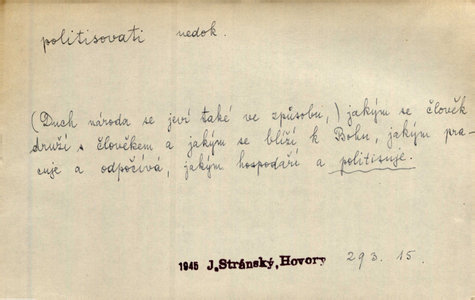 politisovati nedok.
(Duch národa se jeví také ve způsobu,) jakým se člověk
druží s člověkem a jakým se blíží k Bohu, jakým pra-
cuje a odpočívá, jakým hospodaří a politisuje.
1945 J. Stránský, Hovory 293. 15.